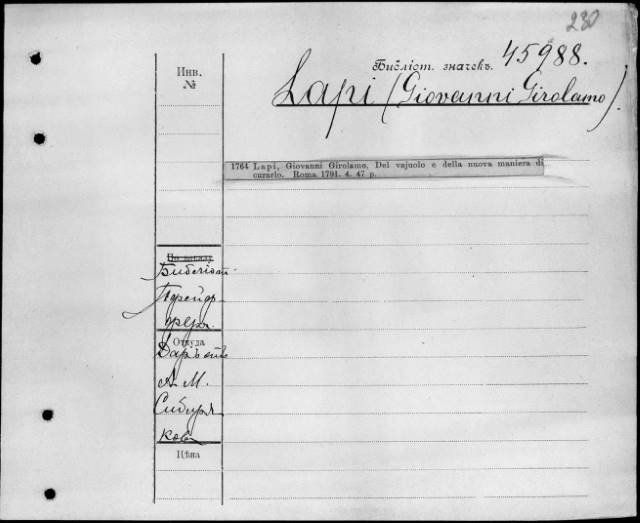 230
Библіот. значекъ. 45988.
Инв.
№
Lapi (Giovanni Girolamo).
1764 Lapi, Giovanni Girolamo, Del vajuolo e della nuova maniera di
curarlo. Roma 1791. 4. 47 p.
По заказу
Библіот.
Откуда
Даръ отъ
А. М.
Сибиря
кова
Цѣна